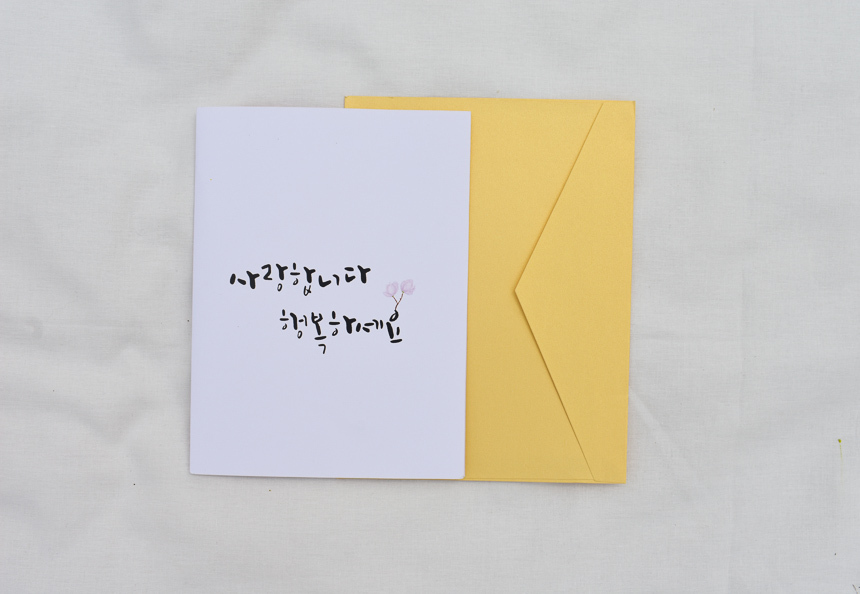 사랑합니다
행복하세요